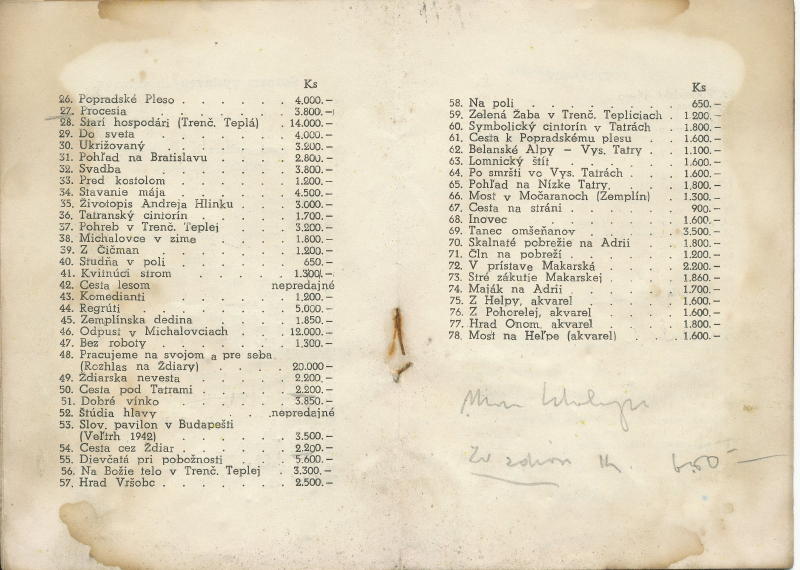 Ks
26. Popradské Pleso . . . . . . 4.000.–
27. Procesia . . . . . . . . 3.800.–
28. Starí hospodári (Trenč. Teplá) . 14.000.–
29. Do sveta . . . . . . . . 4.000.–
30. Ukrižovaný . . . . . . . 3.200.–
31. Pohľad na Bratislavu . . . . 2.800.–
32. Svadba . . . . . . . . 3.800.–
33. Pred kostolom . . . . . . 1.200.–
34. Stavanie mája . . . . . . 4.500.–
35. Životopis Andreja Hlinku . . . 3.000.–
36. Tatranský cintorín . . . . . 1.700.–
37. Pohreb v Trenč. Teplej . . . 3.200.–
38. Michalovce v zime . . . . . 1.800.–
39. Z Čičman . . . . . . . 1.200.–
40. Studňa v poli . . . . . . 650.–
41. Kvitnúci strom . . . . . 1.300.–
42. Cesta lesom nepredajné
43. Komedianti . . . . . . . 1.200.–
44. Regrúti . . . . . . . . 5.000.–
45. Zemplínska dedina . . . . . 1.850.–
46. Odpust v Michalovciach . . . 12.000.–
47. Bez roboty . . . . . . . 1.300.–
48. Pracujeme na svojom a pre seba
(Rozhlas na Ždiary) . . . . 20.000–
49. Ždiarska nevesta . . . . . 2.200.–
50. Cesta pod Tatrami . . . . . 2.200.–
51. Dobré vínko . . . . . . . 3.850.–
52. Štúdia hlavy . . . . . . nepredajné
53. Slov. pavilon v Budapešti
(Veľtrh 1942) . . . . . . 3.500.–
54. Cesta cez Ždiar . . . . . . 2.200.–
55. Dievčatá pri pobožnosti . . . 5.600.–
56. Na Božie telo v Trenč. Teplej . 3.300.–
57. Hrad Vršobc . . . . . . . 2.500.–
Ks
58. Na poli . . . . . . . . 650.–
59. Zelená Žaba v Trenč. Tepliciach . 1 200.–
60. Symbolický cintorín v Tatrách . 1.800.–
61. Cesta k Popradskému plesu . . 1.600.–
62. Belanské Alpy – Vys. Tatry . . 1.100.–
63. Lomnický štít . . . . . . 1.600.–
64. Po smršti vo Vys. Tatrách . . . 1.600.–
65. Pohľad na Nízke Tatry. . . . 1,800.–
66. Most v Močaranoch (Zemplín) . 1.300.–
67. Cesta na stráni . . . . . . 900.–
68. Inovec . . . . . . . . 1.600.–
69. Tanec omšeňanov . . . . . 3.500.–
70. Skalnaté pobrežie na Adrii . . 1.800.–
71. Čln na pobreží . . . . . . 1.200.–
72. V prístave Makarská . . . . 2.200.–
73. Stré zákutie Makarskej . . . . 1.860.–
74. Maják na Adrii . . . . . . 1.700.–
75. Z Helpy, akvarel . . . . . 1.600.–
76. Z Pohorelej, akvarel . . . . 1.600.–
77. Hrad Onom, akvarel . . . . 1.800.–
78. Most na Heľpe (akvarel) . . . 1.600.–
650 –